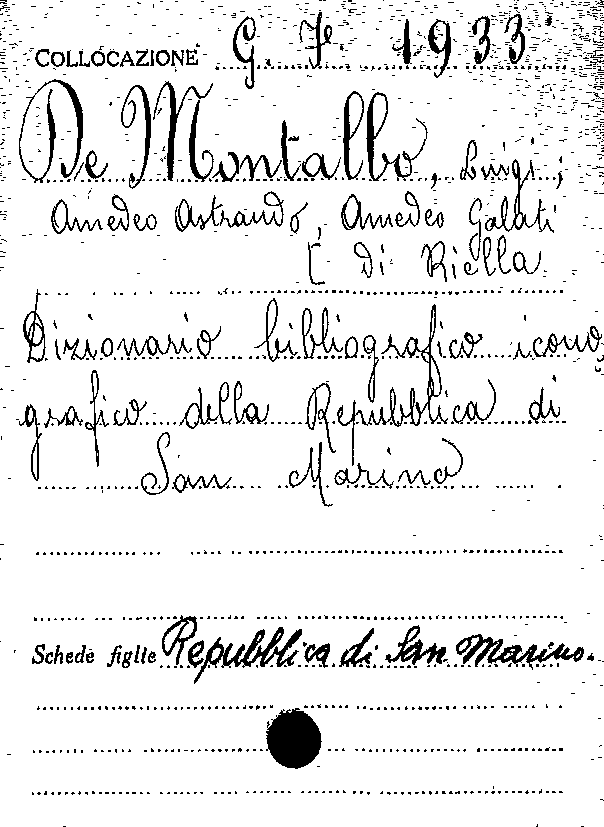 COLLOCAZIONE G. F. 1933
De Montalbo, Luigi;
Amedeo Astraudo, Amedeo Galati
[ di Riella
Dizionario bibliografico icono
grafico della Repubblica di
San Marino
Schede figlie Repubblica di San Marino.